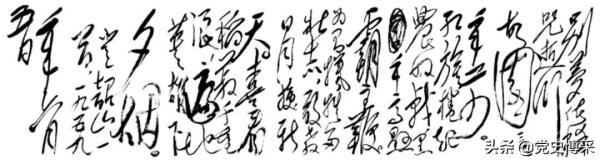 别梦依稀
咒逝川
故园三
十二年前
红旗卷起
农奴戟黑
手高悬
霸主鞭
为有牺牲多
壮志敢教
日月换新
天喜看
稻菽千重
浪遍地
英雄下
夕烟
登韶山一
首一九五九
年六月
头条 @党史博采